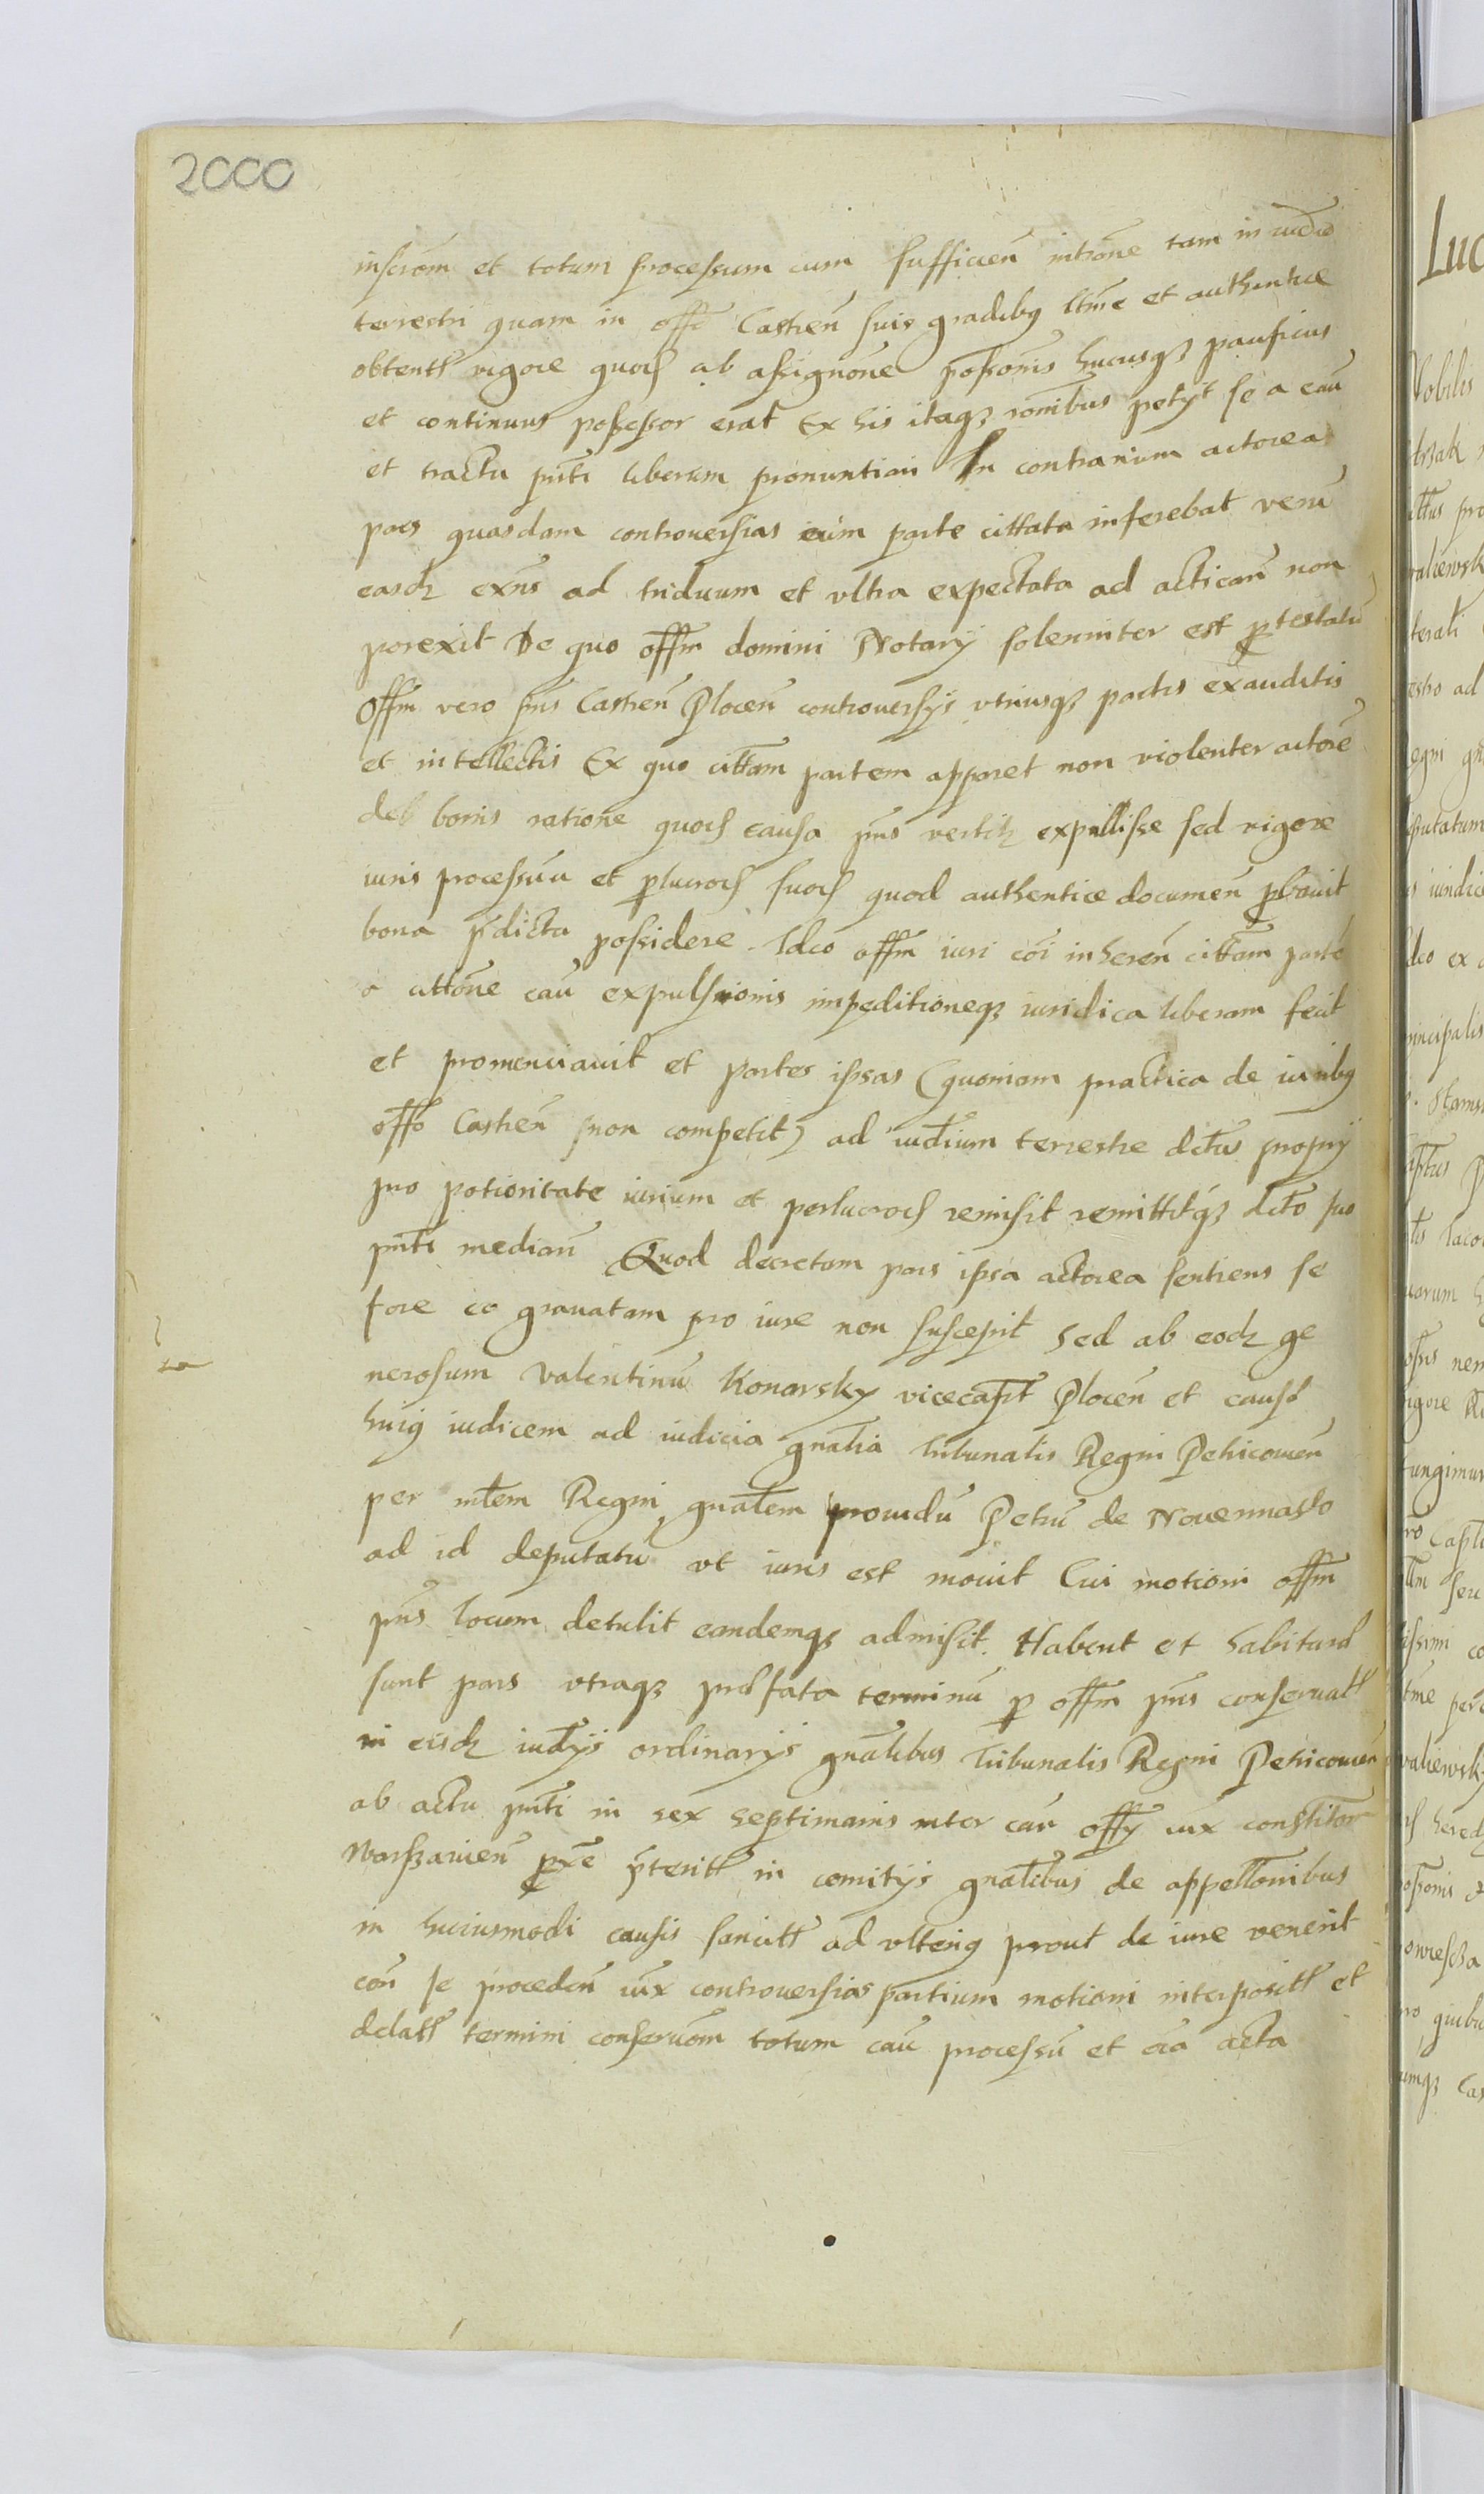 2000
inscrom et totum processum cum sufficien introne tam in iudo
terrestri quam in offo Castren suis gradibus ltme et authentice
obtent vigore quor ab assignone possonis hucusq pacificus
et continuus possessor erat Ex his itaq ronibus petyt se a cau
et tractu pnti liberum pronuntiari In contrarium actorea
pars quasdam controversias cum parte cittata inferebat veru
easd exns ad triduum et ultra expectata ad acticam non
porexit De quo offm domini Notarij solenniter est ptestatu
Offm vero pns Castren Plocen controversijs utriusq partis exauditis
et intellectis Ex quo cittam partem apparet non violenter actore
de bonis ratione quor causa pns vertit expullisse sed vigore
iuris processuu et plucror suor quod authentice documen pbavit
bona pdicta possidere. Ideo offm iuri coi inheren cittam parte
a cittone cau expulsionis impeditioneq iuridica liberam fecit
et pronunciavit et partes ipsas (quoniam practica de iuribus
offo Castren non competit) ad iudium terrestre dictus proprij
pro potioritate iurium et perlucror remisit remittitq dcto suo
pnti median Quod decretum pars ipsa actorea sentiens se
fore eo gravatam pro iure non suscepit Sed ab eod ge
nerosum Valentinu Konarsky vicecapit Plocen et caus
huius iudicem ad iudicia gnalia Tribunalis Regni Petricovien
per mtem Regni gnalem providu Petru de Novemiasto
ad id deputatu ut iuris est movit Cui motioni offm
pns locum detulit eandemq admisit. Habent et habitur
sunt pars utraq prefata terminu p offm pns conservat
in eisd iudijs ordinarijs gnalibus Tribunalis Regni Petricovien
ab actu pnti in sex septimanis inter cau offy iux constitor
Warszavien pxe pterit in comitijs gnalibus de appellonibus
in huiusmodi causis sancit ad ulterius prout de iure venerit
cor se proceden iux controversias partium motioni interposit et
delat termini conservom totum cau processu et oia acta